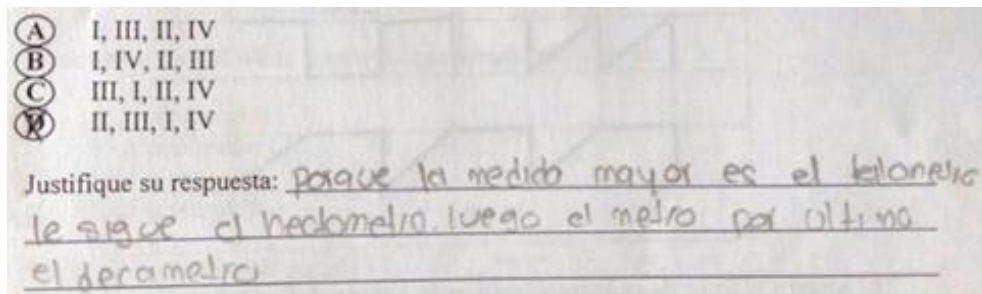 A I, III, II, IV
B I, IV, II, III
C III, I, II, IV
D II, III, I, IV
Justifique su respuesta: porque la medida mayor es el kilometro
le sigue el hectometro, luego el metro por ultimo
el decametro